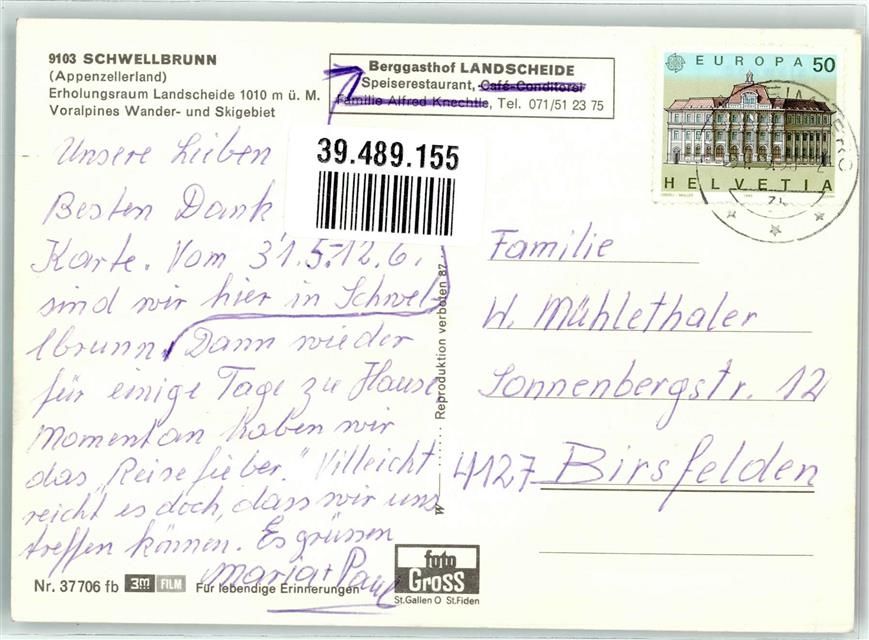 9103 SCHWELLBRUNN
(Appenzellerland)
Erholungsraum Landscheide 1010 m ü. M.
Voralpines Wander- und Skigebiet
Berggasthof LANDSCHEIDE
Speiserestaurant, Café-Conditorei
Familie Alfred Knechtle, Tel. 071/51 23 75
EUROPA 50
HELVETIA
39.489.155
Unsere Lieben
Besten Dank
Karte. Vom 31.5.-12.6.
sind wir hier in Schwel-
lbrunn. Dann wieder
für einige Tage zu Hause
Momentan haben wir
das "Reisefieber." Villeicht
reicht es doch, dass wir uns
treffen können. Es grüssen
Maria + Paul
Familie
W. Mühlethaler
Sonnenbergstr. 12
4127 Birsfelden
Reproduktion verboten 87
W
Nr. 37706 fb 3M FILM Für lebendige Erinnerungen
foto
GROSS
St.Gallen O St.Fiden